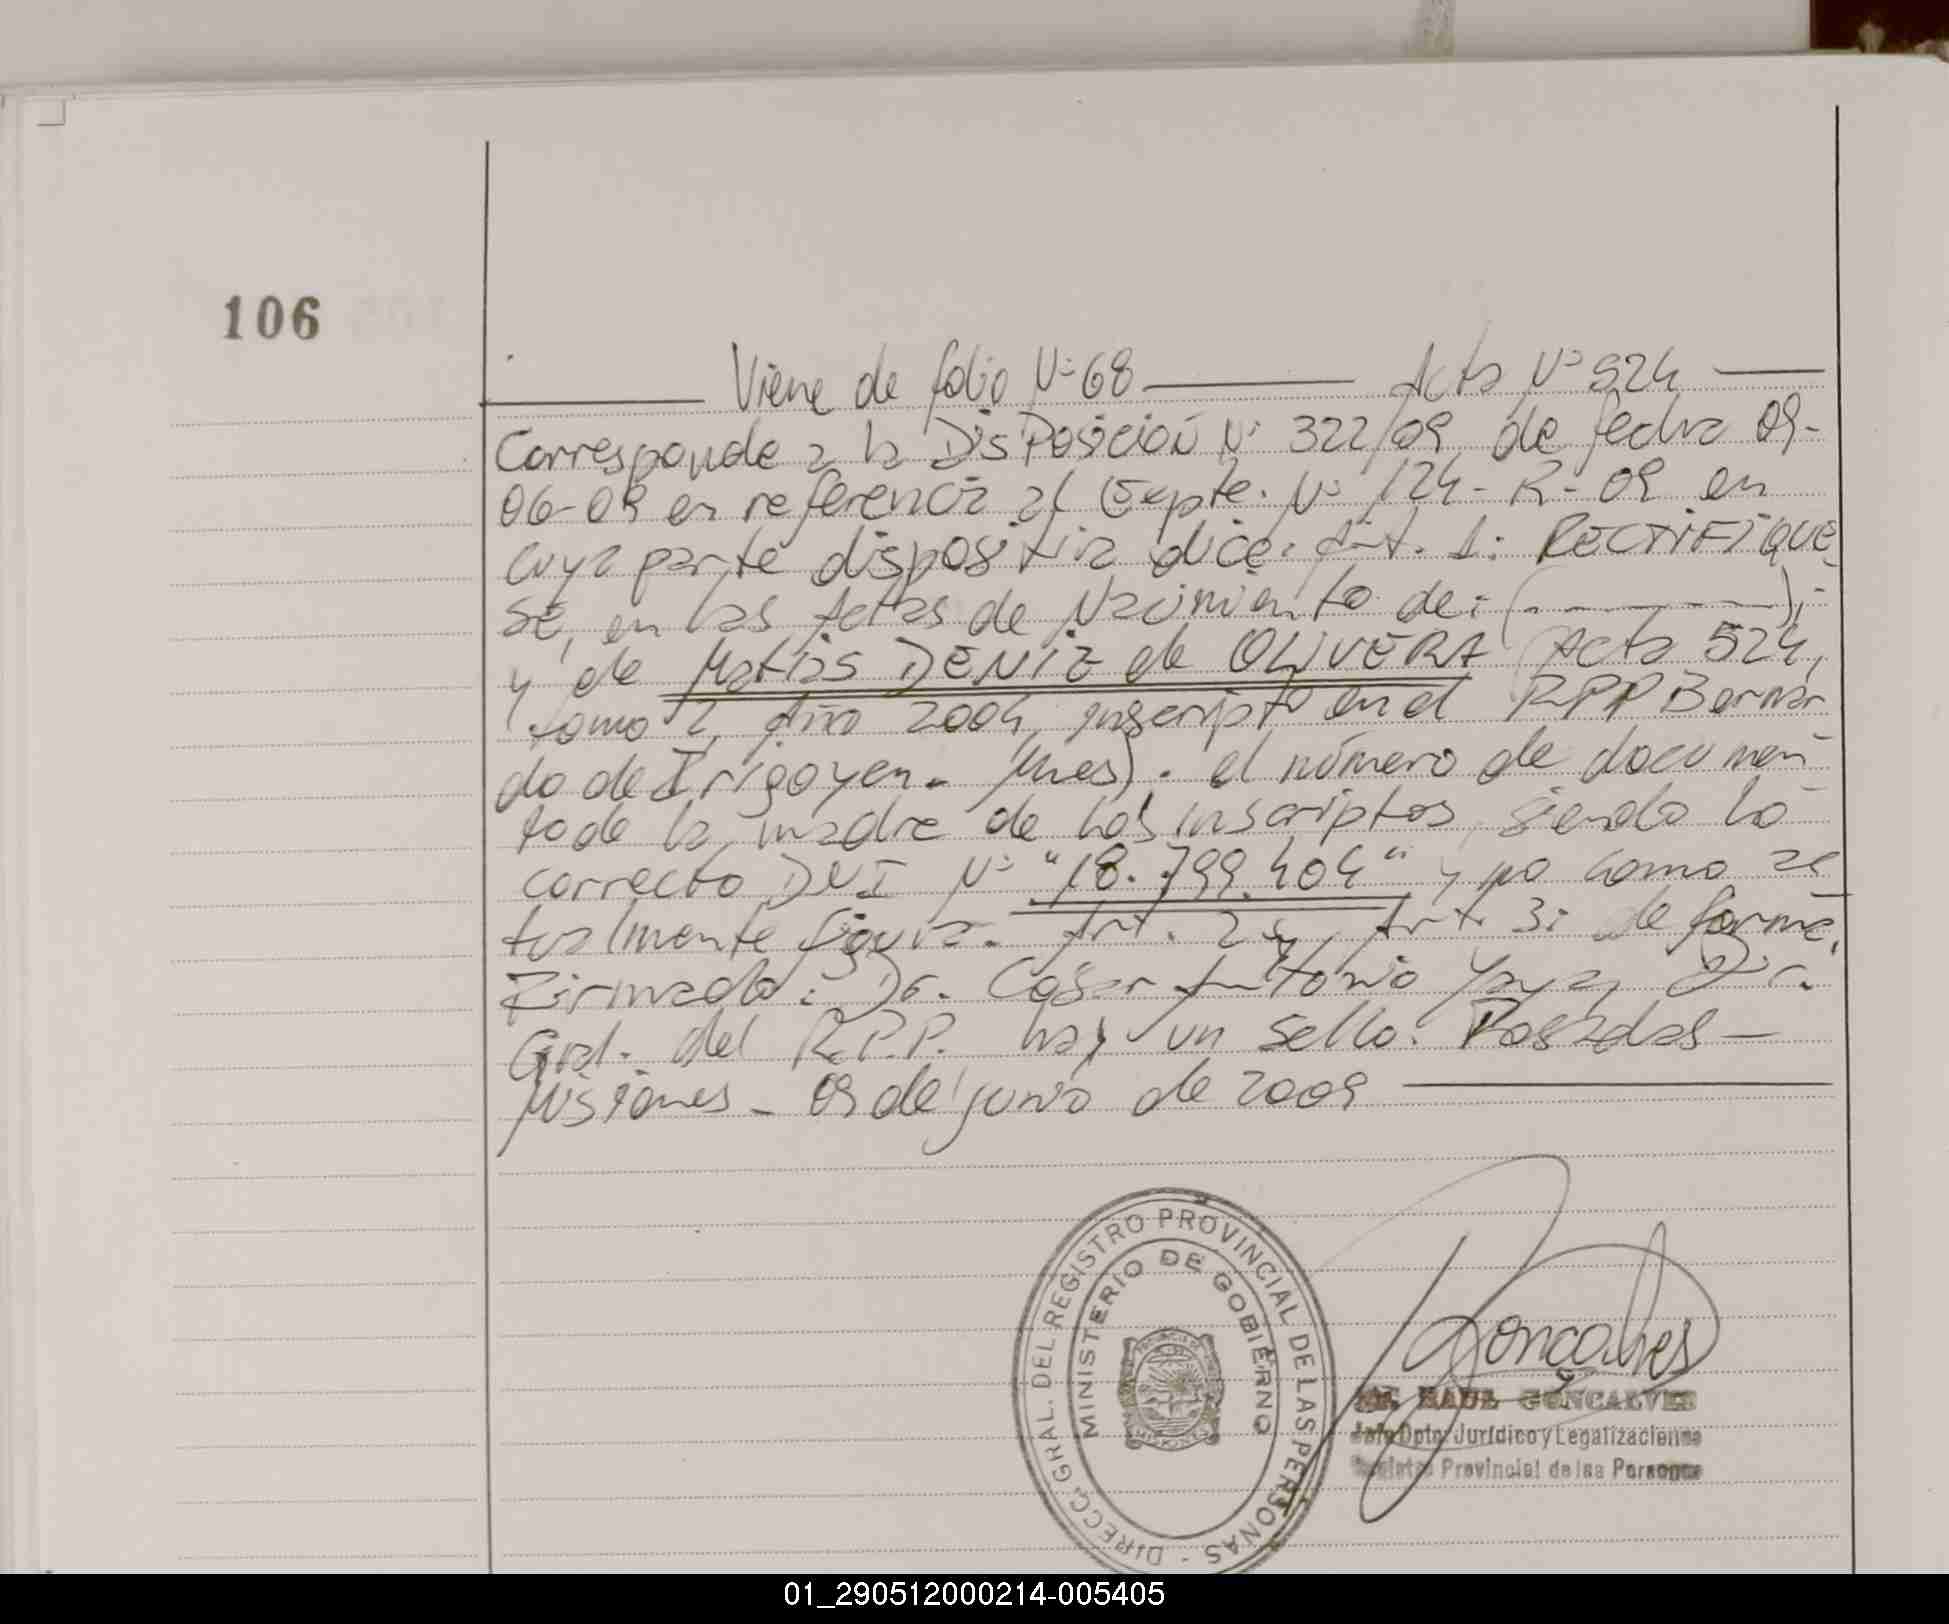 106
Viene de folio Nº 68 ——— Acta Nº 524 ———
Corresponde a la DisPosicion Nº 322/09 de fecha 09-
06-09 en referencia al Expte. Nº 124-R-09 en
cuya parte dispositiva dice: Art. 1: RECTIFIQUE
SE, en las Actas de Nacimiento de: (- - - - - - -);-
y de Matias DENIZ de OLIVERA (Acta 524,
tomo 2, Año 2004, inscripto en el RPP Bernar
do de Irigoyen. Mnes). el número de documen
to de la madre de los inscriptos, siendo lo
correcto DNI Nº "18.799.404" y no como ac
tualmente figura. Art. 2 y Art. 3: de forma.
Firmado: Dr. Cesar Antonio Yaya, Dir.
Gral. del R.P.P. hay un sello. Posadas —
Misiones - 09 de junio de 2009 ———
DIRECC. GRAL. DEL REGISTRO PROVINCIAL DE LAS PERSONAS -
MINISTERIO DE GOBIERNO
Gonçalves
RAUL GONCALVES
Jefe Dpto. Jurídico y Legalizaciones
Registro Provincial de las Personas
01_290512000214-005405